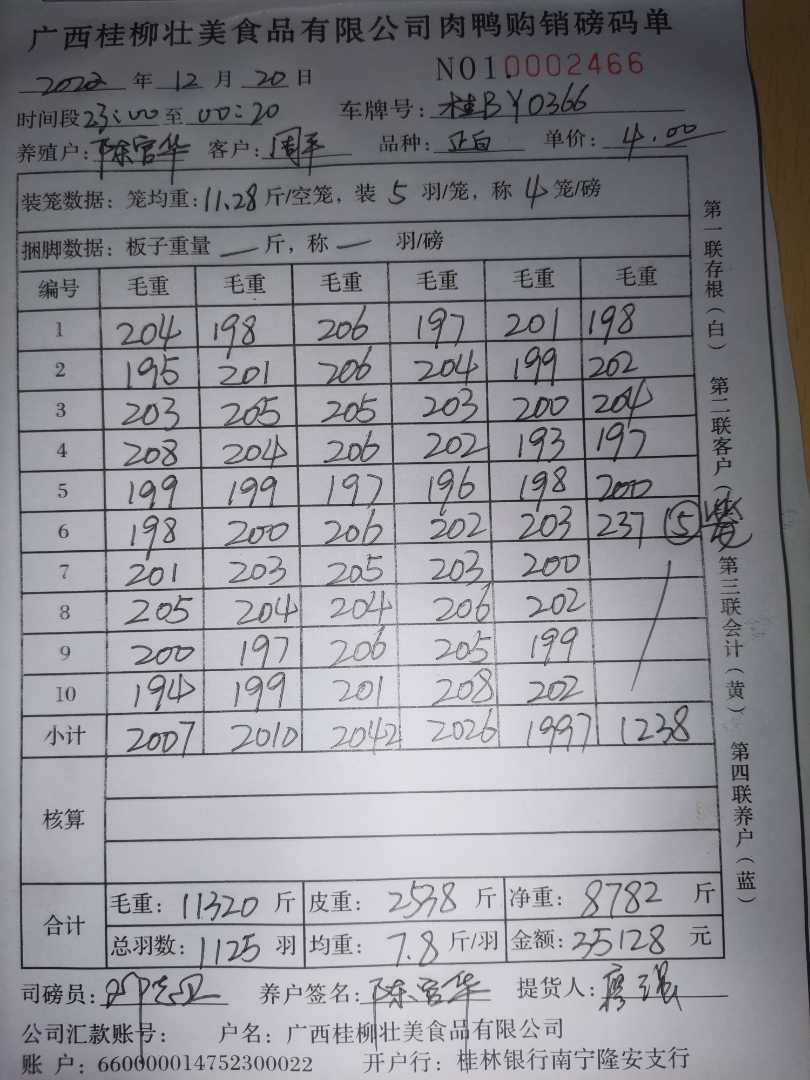 广西桂柳壮美食品有限公司肉鸭购销磅码单
2022 年 12 月 20 日 NO1.0002466
时间段23:00至 00:20 车牌号: 桂BY0366
养殖户: 陈官华 客户: 周平 品种: 正白 单价: 4.00
装笼数据: 笼均重: 11.28 斤/空笼, 装 5 羽/笼, 称 4 笼/磅
捆脚数据: 板子重量 — 斤, 称 — 羽/磅
编号 毛重 毛重 毛重 毛重 毛重 毛重
1 204 198 206 197 201 198
2 195 201 206 204 199 202
3 203 205 205 203 200 204
4 208 204 206 202 193 197
5 199 199 197 196 198 200
6 198 200 206 202 203 237 ⑤笼
7 201 203 205 203 200
8 205 204 204 206 202
9 200 197 206 205 199
10 194 199 201 208 202
小计 2007 2010 2042 2026 1997 1238
核算
合计
毛重: 11320 斤 皮重: 2538 斤 净重: 8782 斤
总羽数: 1125 羽 均重: 7.8 斤/羽 金额: 35128 元
司磅员: 养户签名: 陈官华 提货人:
公司汇款账号: 户名: 广西桂柳壮美食品有限公司
账 户: 660000014752300022 开户行: 桂林银行南宁隆安支行
第一联存根(白) 第二联客户( 第三联会计(黄) 第四联养户(蓝)